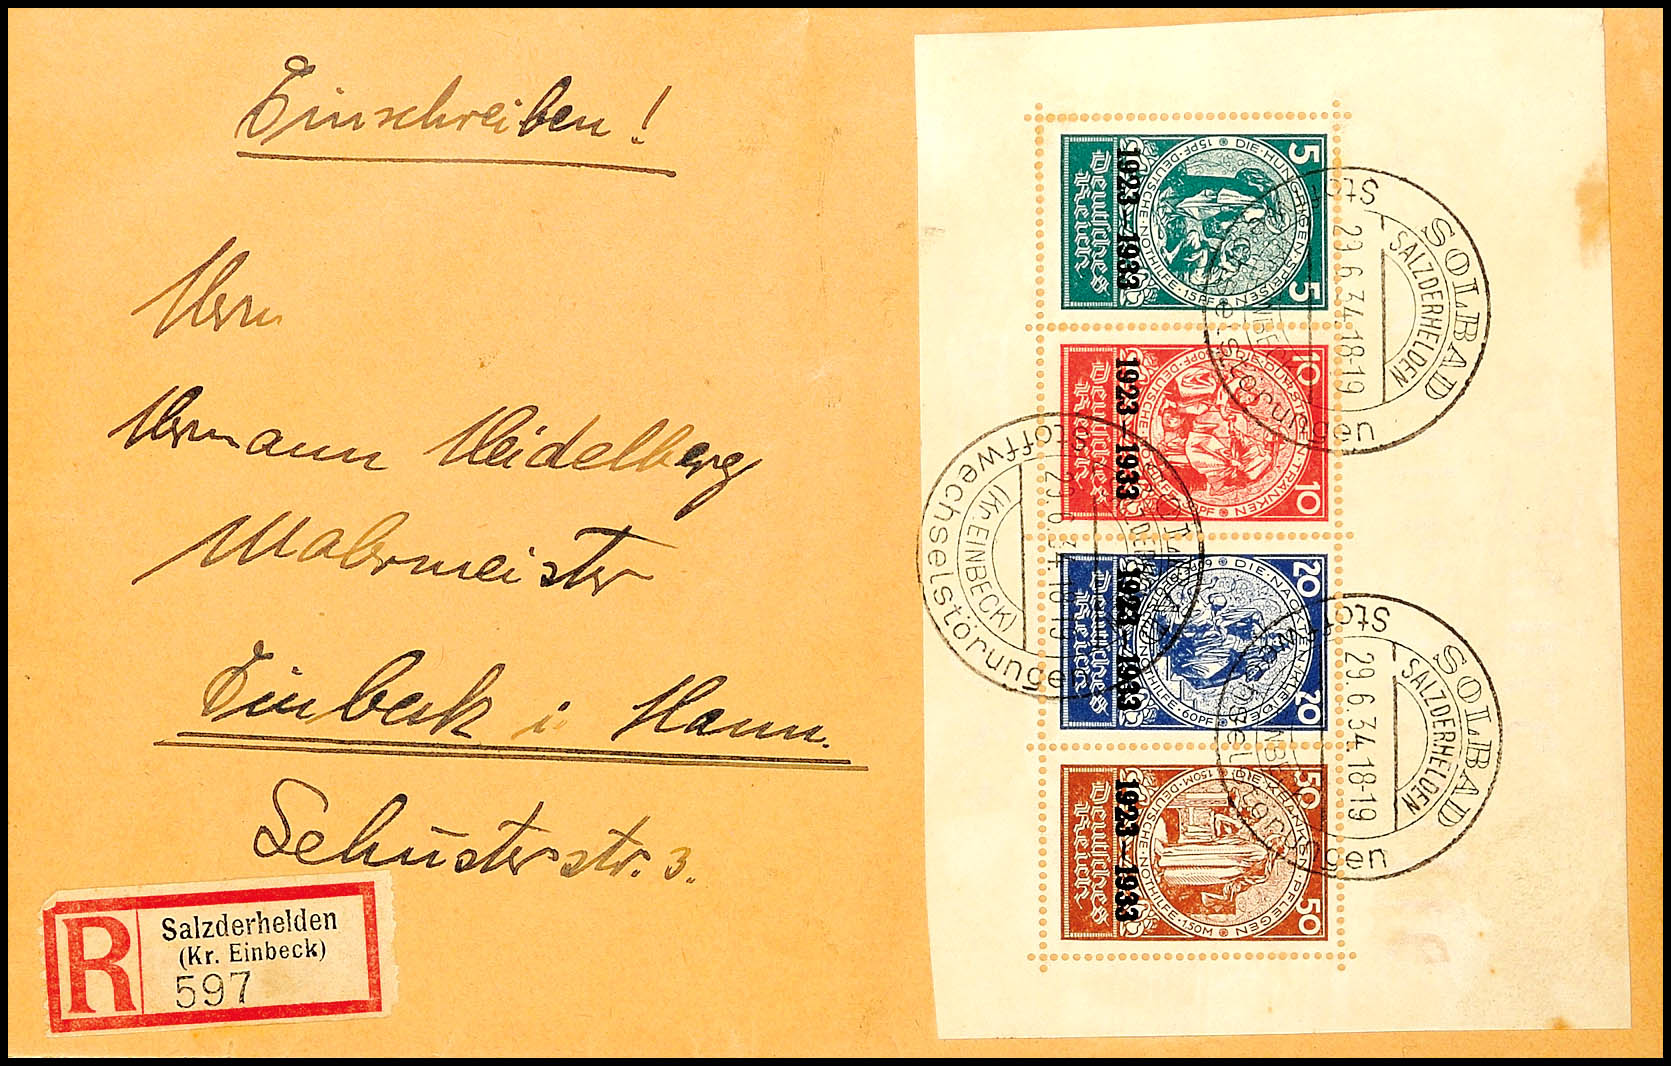 Einschreiben!
Herrn
Hermann Heidelberg
Malermeister
Einbeck i. Hann.
Schusterstr. 3.
R
Salzderhelden
(Kr. Einbeck)
597
5 5
DIE·HUNGRIGEN·SPEISEN
15PF·DEUTSCHE·NOTHILFE·15PF
Deutsches
Reich
1923–1933
10 10
DIE·DURSTIGEN·TRÄNKEN
DEUTSCHE
Deutsches
Reich
1923–1933
20 20
DIE·NACKTEN·KLEIDEN
NOTHILFE·60PF
Deutsches
Reich
1923–1933
50 50
DIE·KRANKEN·PFLEGEN
1,50M·DEUTSCHE·NOTHILFE·1,50M
Deutsches
Reich
1923–1933
SOLBAD
SALZDERHELDEN
29.6.34.18-19
Stoffwechselstörungen
(Kr. EINBECK)
Stoffwechselstörungen
SOLBAD
SALZDERHELDEN
29.6.34.18-19
Stoffwechselstörungen